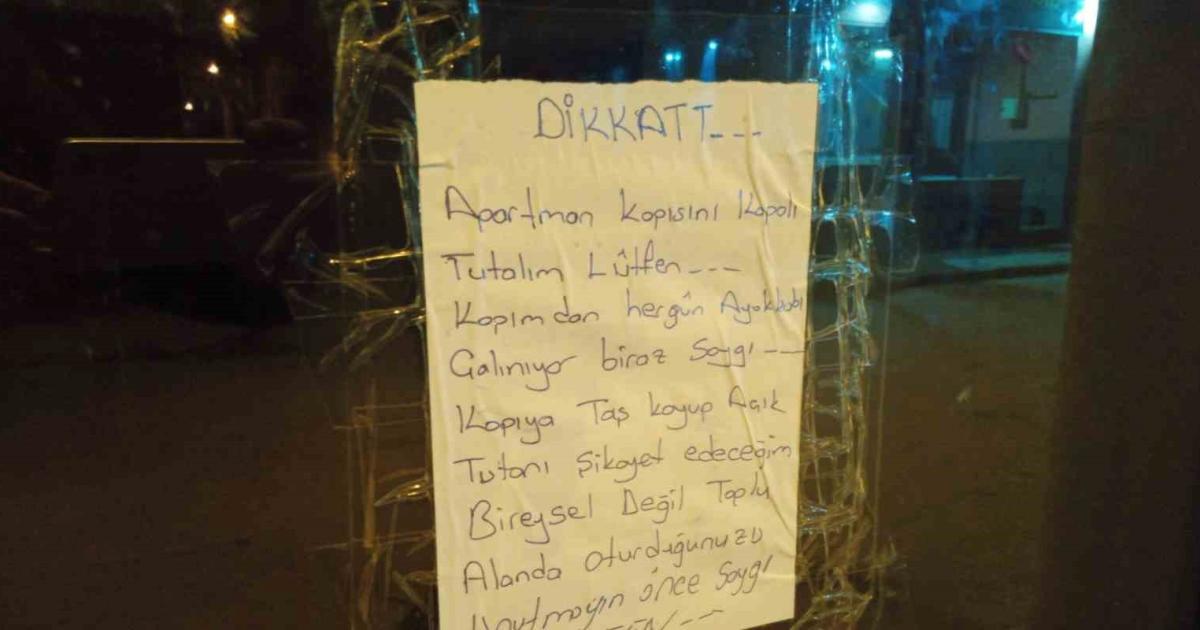 DİKKATT---
Apartman Kapısını Kapalı
Tutalım Lütfen---
Kapımdan hergün Ayakkabı
Çalınıyor biraz Saygı---
Kapıya Taş koyup Açık
Tutanı Şikayet edeceğim
Bireysel Değil Toplu
Alanda oturduğunuzu
Unutmayın önce Saygı